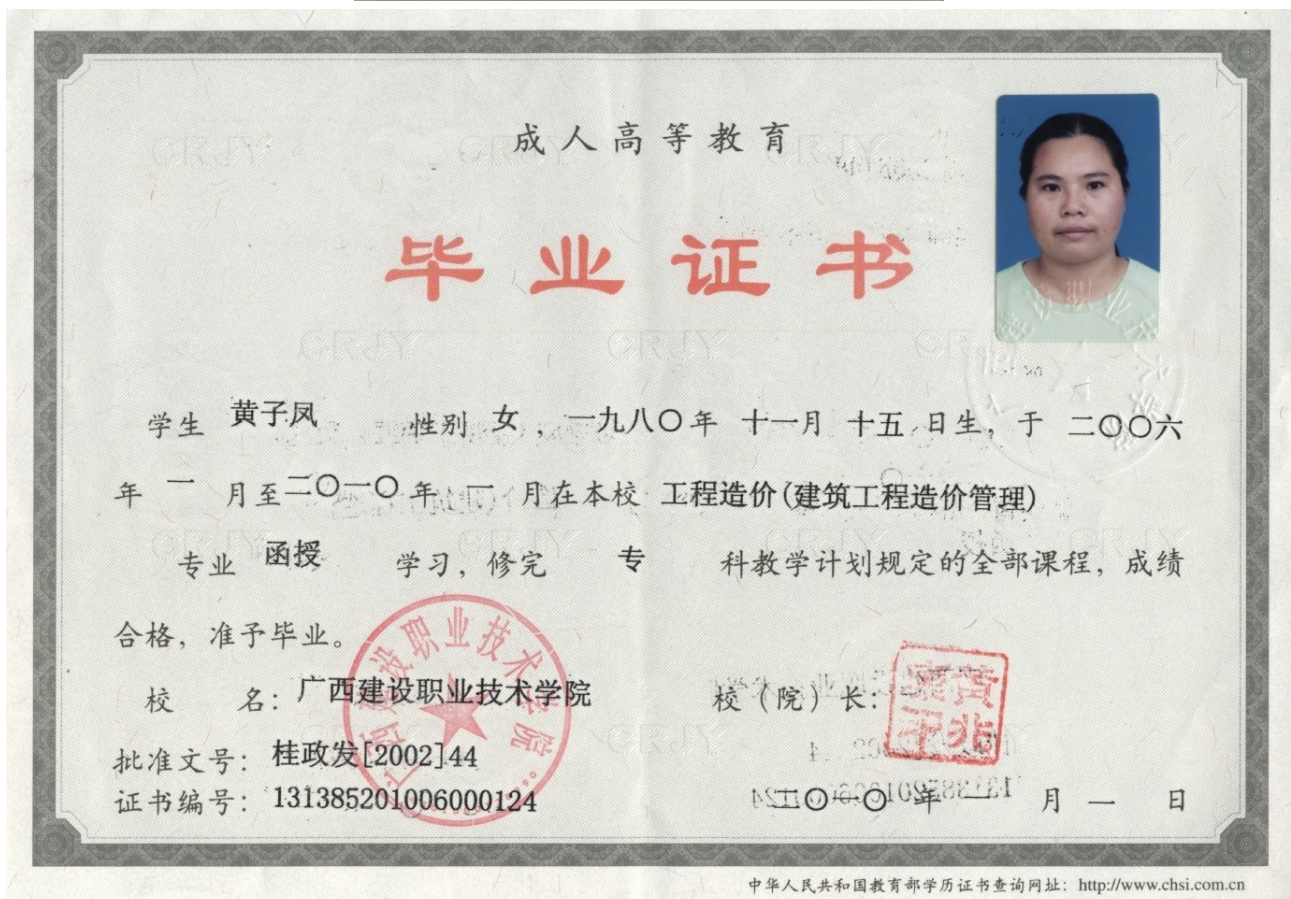 成人高等教育
毕业证书
学生 黄子凤 性别 女，一九八〇年 十一月 十五 日生，于 二〇〇六
年 一 月至二〇一〇年 一 月在本校 工程造价(建筑工程造价管理)
专业 函授 学习，修完 专 科教学计划规定的全部课程，成绩
合格，准予毕业。
校 名：广西建设职业技术学院 校（院）长：
广西建设职业技术学院
批准文号：桂政发[2002]44
证书编号：131385201006000124 二〇一〇 年 一 月 一 日
中华人民共和国教育部学历证书查询网址：http://www.chsi.com.cn